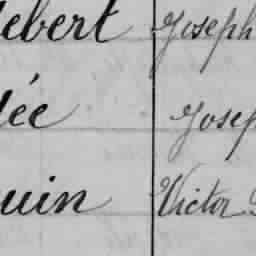 debert Joseph
dée Joseph
quin Victor